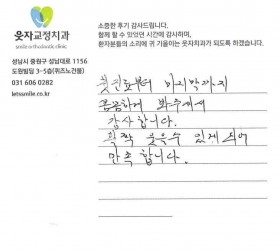 웃자교정치과
smile orthodontic clinic
성남시 중원구 성남대로 1156
도원빌딩 3~5층(위즈노건물)
031 606 0282
letssmile.co.kr
소중한 후기 감사드립니다.
함께 할 수 있었던 시간에 감사하며,
환자분들의 소리에 귀 기울이는 웃자치과가 되도록 하겠습니다.
첫진료부터 마지막까지
꼼꼼하게 봐주셔서
감사합니다.
활짝 웃을수 있게 되어
만족합니다.